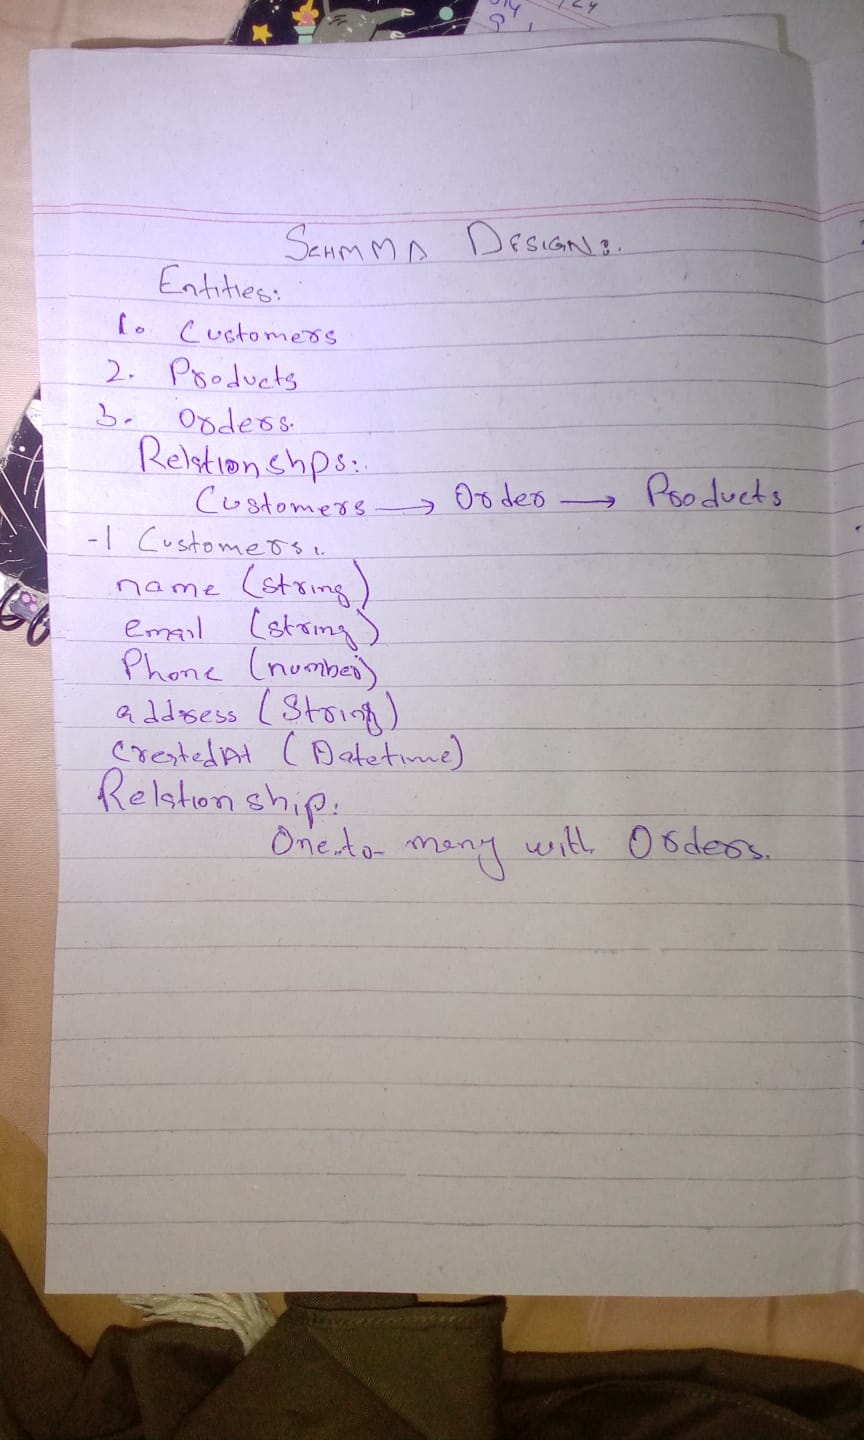 SCHMMA DESIGN:.
Entities:
1. Customers
2. Products
3. Orders.
Relationshps:.
Customers → Order → Products
-1 Customers:.
name (string)
email (string)
Phone (number)
address (String)
CreatedAt (Datetime)
Relationship:
One-to-many with Orders.